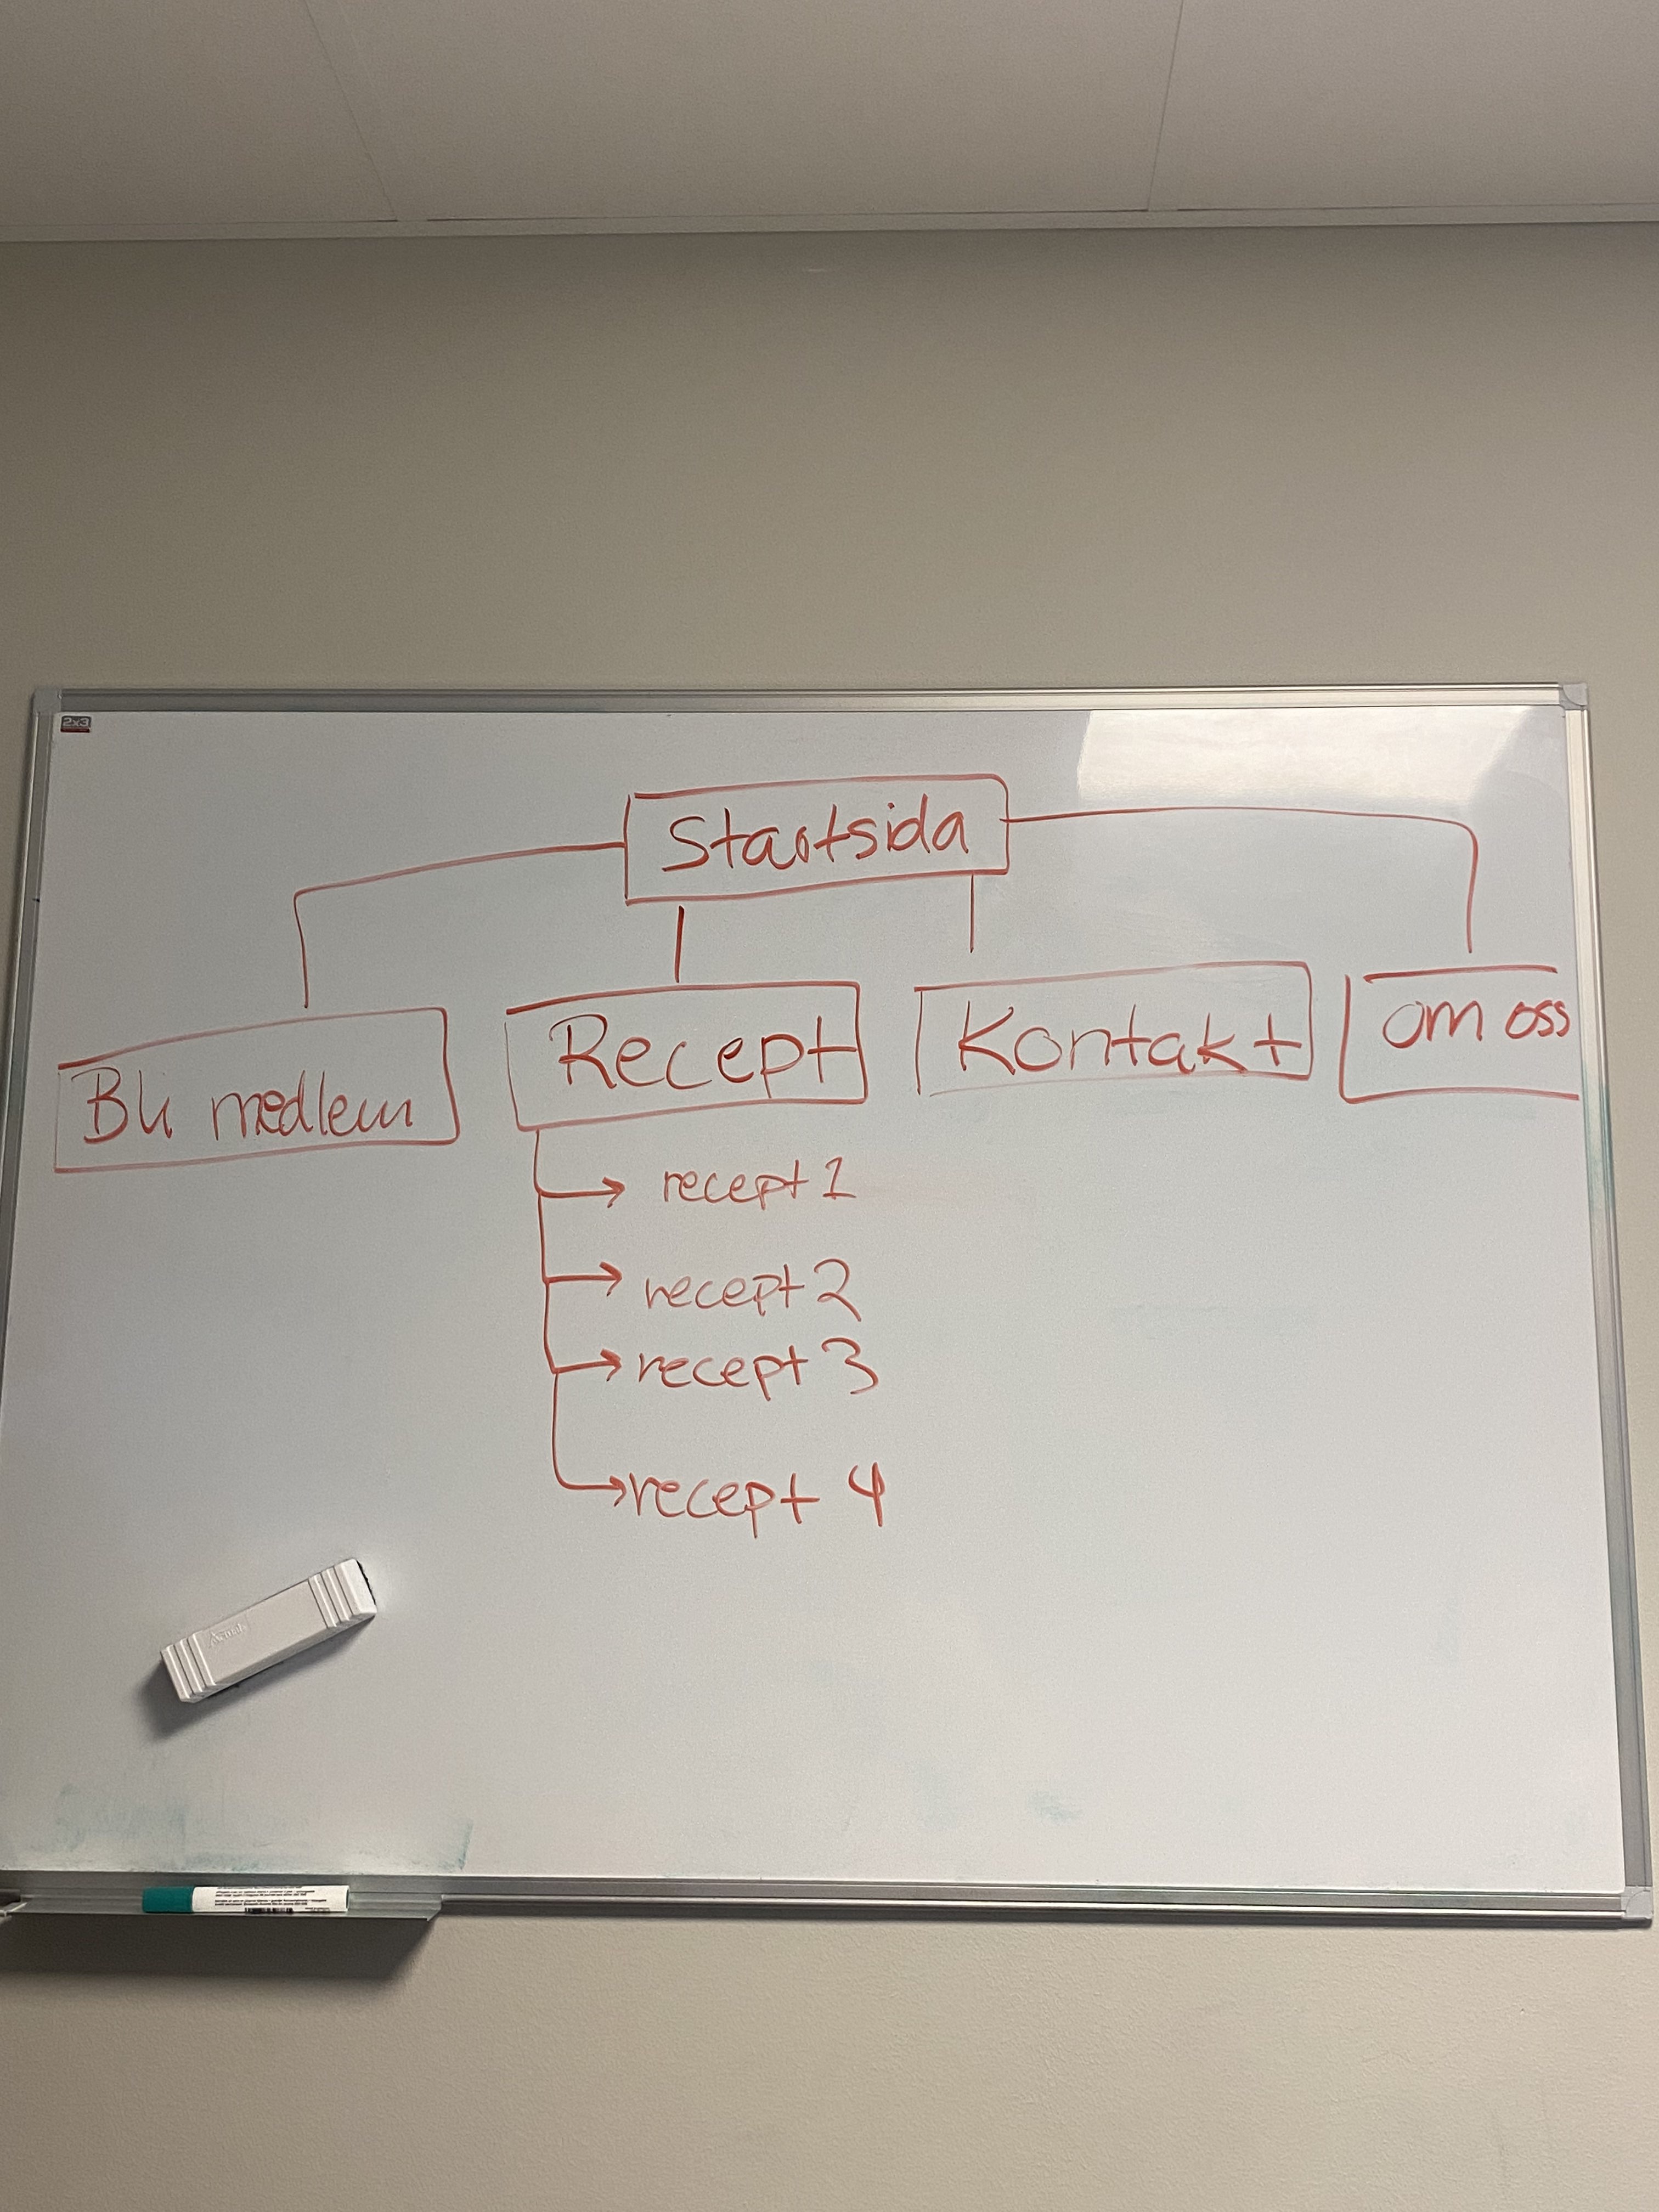 2x3
Startsida
Bli medlem
Recept
Kontakt
om oss
recept 1
recept 2
recept 3
recept 4